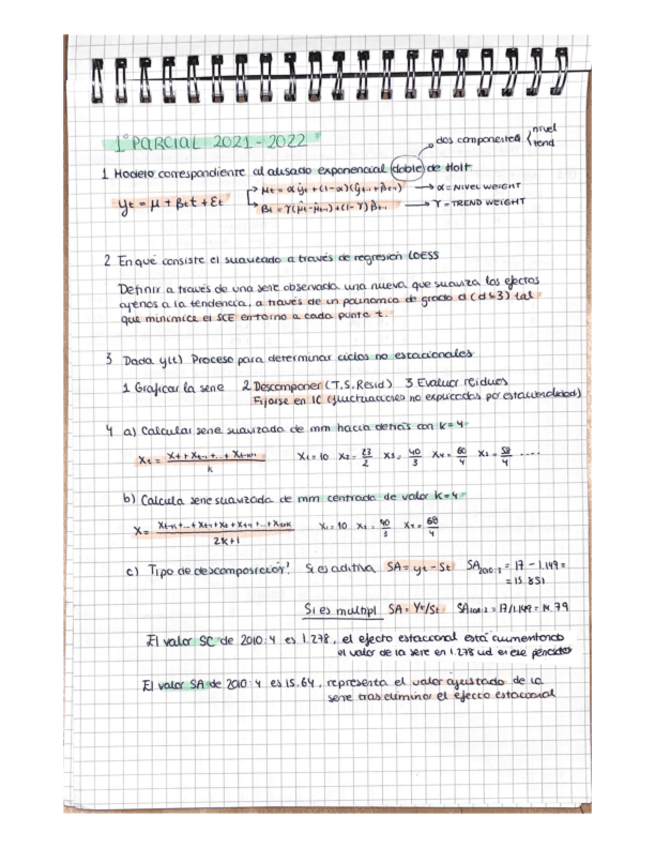 1º PARCIAL 2021-2022
dos componentes { nivel
tend
1 Modelo correspondiente al alisado exponencial (doble) de Holt
yt = μ + βt t + εt
μt = αyt + (1-α)(ŷt-1 + β̂t-1) → α = NIVEL WEIGHT
βt = γ(μ̂t - μ̂t-1) + (1-γ)β̂t-1 → γ = TREND WEIGHT
2 En qué consiste el suavizado a través de regresión LOESS
Definir a través de una serie observada una nueva que suaviza los efectos
ajenos a la tendencia, a través de un polinomio de grado d (d≤3) tal
que minimice el SCE entorno a cada punto t.
3 Dada y(t) Proceso para determinar ciclos no estacionales
1 Graficar la serie 2 Descomponer (T.S.Resid) 3 Evaluar residuos
Fijarse en IC (fluctuaciones no explicadas por estacionalidad)
4 a) Calcular serie suavizada de mm hacia detrás con k=4
Xt = (Xt + Xt-1 + ... + Xt-k+1) / k X1 = 10 X2 = 23/2 X3 = 40/3 X4 = 60/4 X5 = 58/4 ....
b) Calcula serie suavizada de mm centrada de valor k=4
X = (Xt-k + ... + Xt-1 + Xt + Xt+1 + ... + Xt+k) / 2k+1 X1 = 10 = 40/3 = 68/4
c) Tipo de descomposición! Si es aditiva SA = yt - St = 17 - 1.149 =
= 15.851
Si es multipl SA = Yt/St = 17/1.149 = 14.79
El valor SC de 2010:4 es 1.278, el efecto estacional está aumentando
el valor de la serie en 1.278 ud en ese periodo
El valor SA de 2010:4 es 15.64, representa el valor ajustado de la
serie tras eliminar el efecto estacional